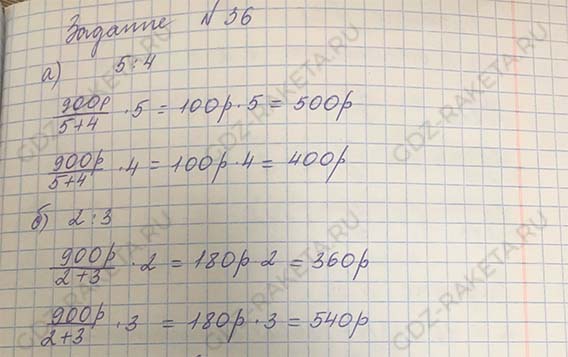 Задание N 36
а) 5:4
900р/5+4 · 5 = 100р · 5 = 500р
900р/5+4 · 4 = 100р · 4 = 400р
б) 2:3
900р/2+3 · 2 = 180р · 2 = 360р
900р/2+3 · 3 = 180р · 3 = 540р
GDZ-RAKETA.RU
GDZ-RAKETA.RU
GDZ-RAKETA.RU
GDZ-RAKETA.RU
GDZ-RAKETA.RU
GDZ-RAKETA.RU